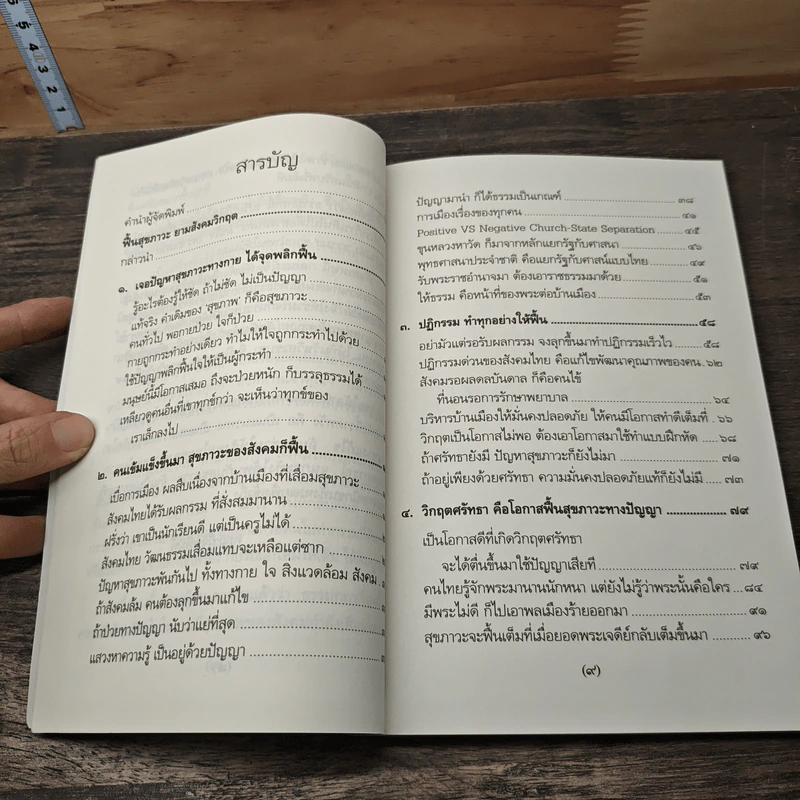 5 5 4 3 2 1
สารบัญ
คำนำผู้จัดพิมพ์
ฟื้นสุขภาวะ ยามสังคมวิกฤต
กล่าวนำ
๑. เจอปัญหาสุขภาวะทางกาย ได้จุดพลิกฟื้น
รู้อะไรต้องรู้ให้ชัด ถ้าไม่ชัด ไม่เป็นปัญญา
แท้จริง คำเดิมของ 'สุขภาพ' ก็คือสุขภาวะ
คนทั่วไป พอกายป่วย ใจก็ป่วย
กายถูกกระทำอย่างเดียว ทำไมให้ใจถูกกระทำไปด้วย
ใช้ปัญญาพลิกฟื้นใจให้เป็นผู้กระทำ
มนุษย์นี้มีโอกาสเสมอ ถึงจะป่วยหนัก ก็บรรลุธรรมได้
เหลียวดูคนอื่นที่เขาทุกข์กว่า จะเห็นว่าทุกข์ของ
เราเล็กลงไป
๒. คนเข้มแข็งขึ้นมา สุขภาวะของสังคมก็ฟื้น
เบื่อการเมือง ผลสืบเนื่องจากบ้านเมืองที่เสื่อมสุขภาวะ
สังคมไทยได้รับผลกรรม ที่สั่งสมมานาน
ฝรั่งว่า เขาเป็นนักเรียนดี แต่เป็นครูไม่ได้
สังคมไทย วัฒนธรรมเสื่อมแทบจะเหลือแต่ซาก
ปัญหาสุขภาวะพันกันไป ทั้งทางกาย ใจ สิ่งแวดล้อม สังคม
ถ้าสังคมล้ม คนต้องลุกขึ้นมาแก้ไข
ถ้าป่วยทางปัญญา นับว่าแย่ที่สุด
แสวงหาความรู้ เป็นอยู่ด้วยปัญญา
ปัญญามานำ ก็ได้ธรรมเป็นเกณฑ์ ๓๘
การเมืองเรื่องของทุกคน ๔๑
Positive VS Negative Church-State Separation ๔๕
ขุนหลวงหาวัด ก็มาจากหลักแยกรัฐกับศาสนา ๔๖
พุทธศาสนาประจำชาติ คือแยกรัฐกับศาสน์แบบไทย ๔๙
รับพระราชอำนาจมา ต้องเอาราชธรรมมาด้วย ๕๑
ให้ธรรม คือหน้าที่ของพระต่อบ้านเมือง ๕๓
๓. ปฏิกรรม ทำทุกอย่างให้ฟื้น ๕๘
อย่ามัวแต่รอรับผลกรรม จงลุกขึ้นมาทำปฏิกรรมเร็วไว ๕๘
ปฏิกรรมด่วนของสังคมไทย คือแก้ไขพัฒนาคุณภาพของคน ๖๒
สังคมรอผลดลบันดาล ก็คือคนไข้
ที่นอนรอการรักษาพยาบาล ๖๔
บริหารบ้านเมืองให้มั่นคงปลอดภัย ให้คนมีโอกาสทำดีเต็มที่ ๖๖
วิกฤตเป็นโอกาสไม่พอ ต้องเอาโอกาสมาใช้ทำแบบฝึกหัด ๖๘
ถ้าศรัทธายังมี ปัญหาสุขภาวะก็ยังไม่มา ๗๑
ถ้าอยู่เพียงด้วยศรัทธา ความมั่นคงปลอดภัยแท้ก็ยังไม่มี ๗๓
๔. วิกฤตศรัทธา คือโอกาสฟื้นสุขภาวะทางปัญญา ๗๙
เป็นโอกาสดีที่เกิดวิกฤตศรัทธา
จะได้ตื่นขึ้นมาใช้ปัญญาเสียที ๗๙
คนไทยรู้จักพระมานานนักหนา แต่ยังไม่รู้ว่าพระนั้นคือใคร ๘๔
มีพระไม่ดี ก็ไปเอาพลเมืองร้ายออกมา ๙๑
สุขภาวะจะฟื้นเต็มที่เมื่อยอดพระเจดีย์กลับเต็มขึ้นมา ๙๖
(๙)